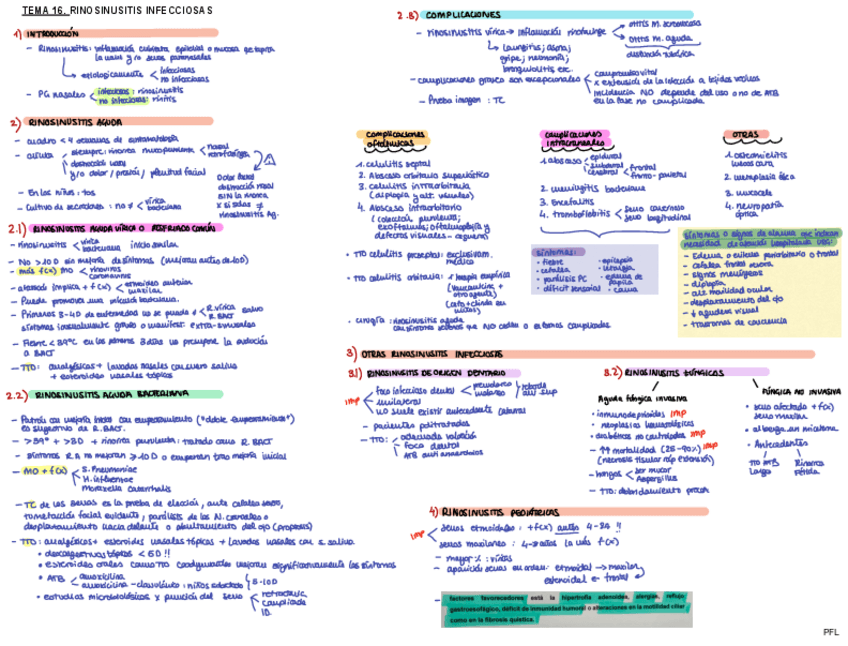 TEMA 16. RINOSINUSITIS INFECCIOSAS
1) INTRODUCCIÓN
- Rinosinusitis: inflamación
la nariz y/o senos paranasales
etiológicamente < infecciosas
no infecciosas
- PG nasales < infecciosas: rinosinusitis
no infecciosas: rinitis
2) RINOSINUSITIS AGUDA
- cuadro < 4 semanas de sintomatología
- clínica siempre: rinorrea mucopurulenta < nasal
retrofaríngea
obstrucción nasal
y/o dolor / presión / plenitud facial
Dolor facial
obstrucción nasal
SIN la rinorrea
x sí solas ≠
rinosinusitis Ag.
- En los niños: tos
- Cultivo de secreciones: no ≠ < vírica
bacteriana
2.1) RINOSINUSITIS AGUDA VÍRICA O RESFRIADO COMÚN
- Rinosinusitis < vírica
bacteriana inicio similar
- No > 10 D sin mejoría de síntomas (mejoran antes de 10D)
- más f(x) mo < rinovirus
coronavirus
- afectación implica + f(x) < etmoides anterior
maxilar
- Puede promover una infección bacteriana.
- Primeros 3-4D de enfermedad no se puede ≠ < R. vírica salvo
R. BACT
síntomas inusualmente graves o manifest. extra-sinusales
- Fiebre < 39ºC en los primeros 3 días no presupone la evolución
a BACT
- TTO: analgésicos + lavados nasales con suero salino
+ esteroides nasales tópicos
2.2) RINOSINUSITIS AGUDA BACTERIANA
- Patrón con mejoría inicial con empeoramiento ("doble empeoramiento")
es sugestivo de R. BACT.
- > 39º + > 3D + rinorrea purulenta: tratado como R. BACT
- Síntomas R.A no mejoran > 10D o empeoran tras mejoría inicial
- MO + f(x) < S. Pneumoniae
H. influenzae
Moraxella catarrhalis
- TC de los senos es la prueba de elección, ante cefalea severa,
tumefacción facial evidente; parálisis de los N. craneales o
desplazamiento hacia delante o abultamiento del ojo (proptosis)
- TTO: analgésicos + esteroides nasales tópicos + lavados nasales con s. salino
• descongestivos tópicos < 5D !!
• esteroides orales como tto coadyuvante mejoran significativamente los síntomas
• ATB < amoxicilina
amoxicilina - clavulánico: niños
5-10D
• estudios microbiológicos x punción del seno < refractaria
complicada
ID.
2.3) COMPLICACIONES
- rinosinusitis vírica → inflamación rinofaringe → otitis m. secretora
otitis m. aguda
disfunción tubárica
laringitis; asma;
gripe; neumonía;
bronquiolitis etc.
- complicaciones graves son excepcionales < compromiso vital
x extensión de la infección a tejidos vecinos
incidencia NO depende del uso o no de ATB
en la fase no complicada
- Prueba imagen: TC
complicaciones
oftálmicas
1. celulitis septal
2. Absceso orbitario subperióstico
3. celulitis intraorbitaria
(diplopía y alt. visuales)
4. Absceso intraorbitario
(colección purulenta;
exoftalmos; oftalmoplejia y
defectos visuales - ceguera)
• TTO celulitis preseptal: exclusivam.
médica
• TTO celulitis orbitaria: terapia empírica
(vancomicina +
otro agente)
• cirugía: rinosinusitis aguda
con síntomas severos que NO ceden o en formas complicadas
complicaciones
intracraneales
1. absceso < epidural
subdural
cerebral < frontal
fronto-parietal
2. meningitis bacteriana
3. Encefalitis
4. tromboflebitis < seno cavernoso
seno longitudinal
síntomas:
• fiebre
• cefalea
• parálisis PC
• déficit sensorial
• epilepsia
• letargia
• edema de
papila
• coma
OTRAS
1. osteomielitis
2. metaplasia ósea
3. mucocele
4. neuropatía
óptica
síntomas o signos de alarma que indican
necesidad de atención hospitalaria URG:
- Edema o eritema periorbitario o frontal
- cefalea frontal severa
- signos meníngeos
- diplopía
- alt. movilidad ocular
- desplazamiento del ojo
- ↓ agudeza visual
- trastornos de conciencia
3) OTRAS RINOSINUSITIS INFECCIOSAS
3.1) RINOSINUSITIS DE ORIGEN DENTARIO
- foco infeccioso dental < premolares
molares
imp
- unilateral
- no suele existir antecedente catarral
- pacientes politratados
- TTO: adecuada valoración
foco dental
ATB anti anaerobios
3.2) RINOSINUSITIS FÚNGICAS
Aguda fúngica invasiva
• inmunodeprimidos imp
• neoplasias hematológicas
• diabéticos no controlados imp
- ↑↑ mortalidad (25-90%) imp
(necrosis tisular rap extensión)
- hongos < ser mucor
Aspergillus
- TTO: desbridamiento precoz
FÚNGICA NO INVASIVA
• seno afectado + f(x)
seno maxilar
• alberga un micetoma
• Antecedentes
TTO ATB
largo
Rinorrea
fétida
4) RINOSINUSITIS PEDIÁTRICAS
imp
senos etmoidales: + f(x) antes 4-7A !!
senos maxilares: 4-7 años la más f(x)
- mayor x: víricas
- aparición senos en orden: etmoidal → maxilar
esfenoidal ← frontal
- factores favorecedores está la hipertrofia adenoides, alergias, reflujo
gastroesofágico, déficit de inmunidad humoral o alteraciones en la motilidad ciliar
como en la fibrosis quística.
PFL